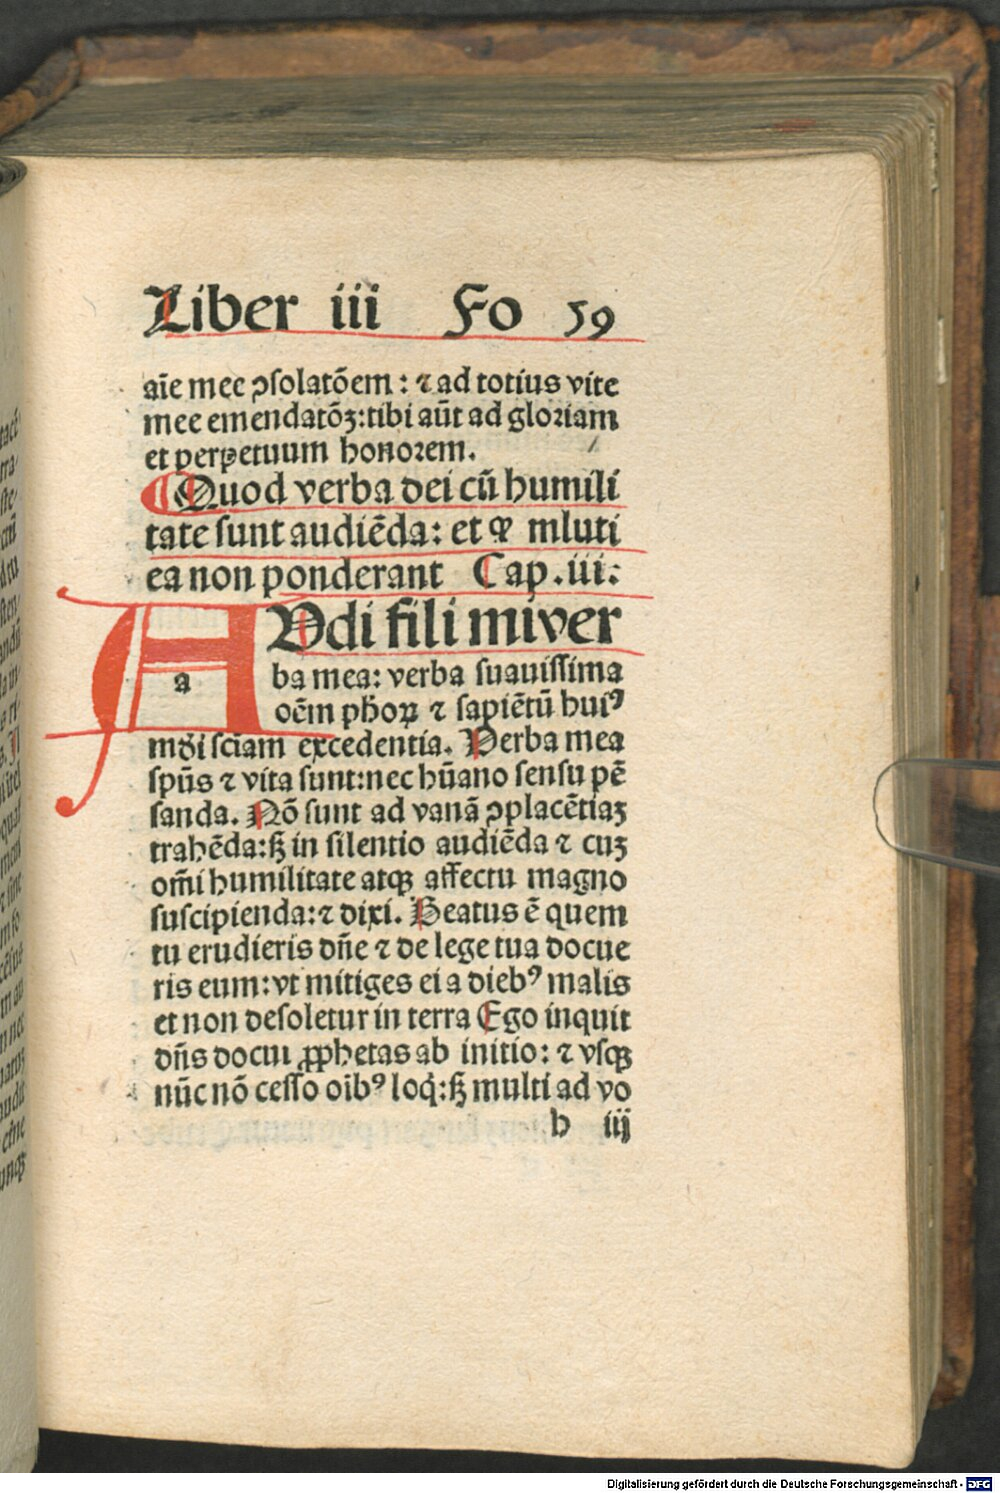 Liber iii Fo 59
aīe mee ꝯsolatōem : ⁊ ad totius vite
mee emendatōꝫ:tibi aūt ad gloriam
et perpetuum honorem.
Quod verba dei cū humili
tate sunt audiēda: et ꝙ mluti
ea non ponderant Cap.iii:
AVdi fili mi ver
a
ba mea: verba suauissima
oēm ph̄oꝝ ⁊ sapiētū huiꝰ
mūdi sciam excedentia. Verba mea
spūs ⁊ vita sunt:nec hūano sensu pē
sanda. Nō sunt ad vanā ꝯplacētiaꝫ
trahēda:sꝫ in silentio audiēda ⁊ cuꝫ
om̄i humilitate atqꝫ affectu magno
suscipienda:⁊ dixi. Beatus ē quem
tu erudieris dn̄e ⁊ de lege tua docue
ris eum:vt mitiges ei a diebꝰ malis
et non desoletur in terra Ego inquit
dn̄s docui ꝓphetas ab initio: ⁊ vsqꝫ
nūc nō cesso oībꝰ loq̇:sꝫ multi ad vo
h iij
Digitalisierung gefördert durch die Deutsche Forschungsgemeinschaft - DFG